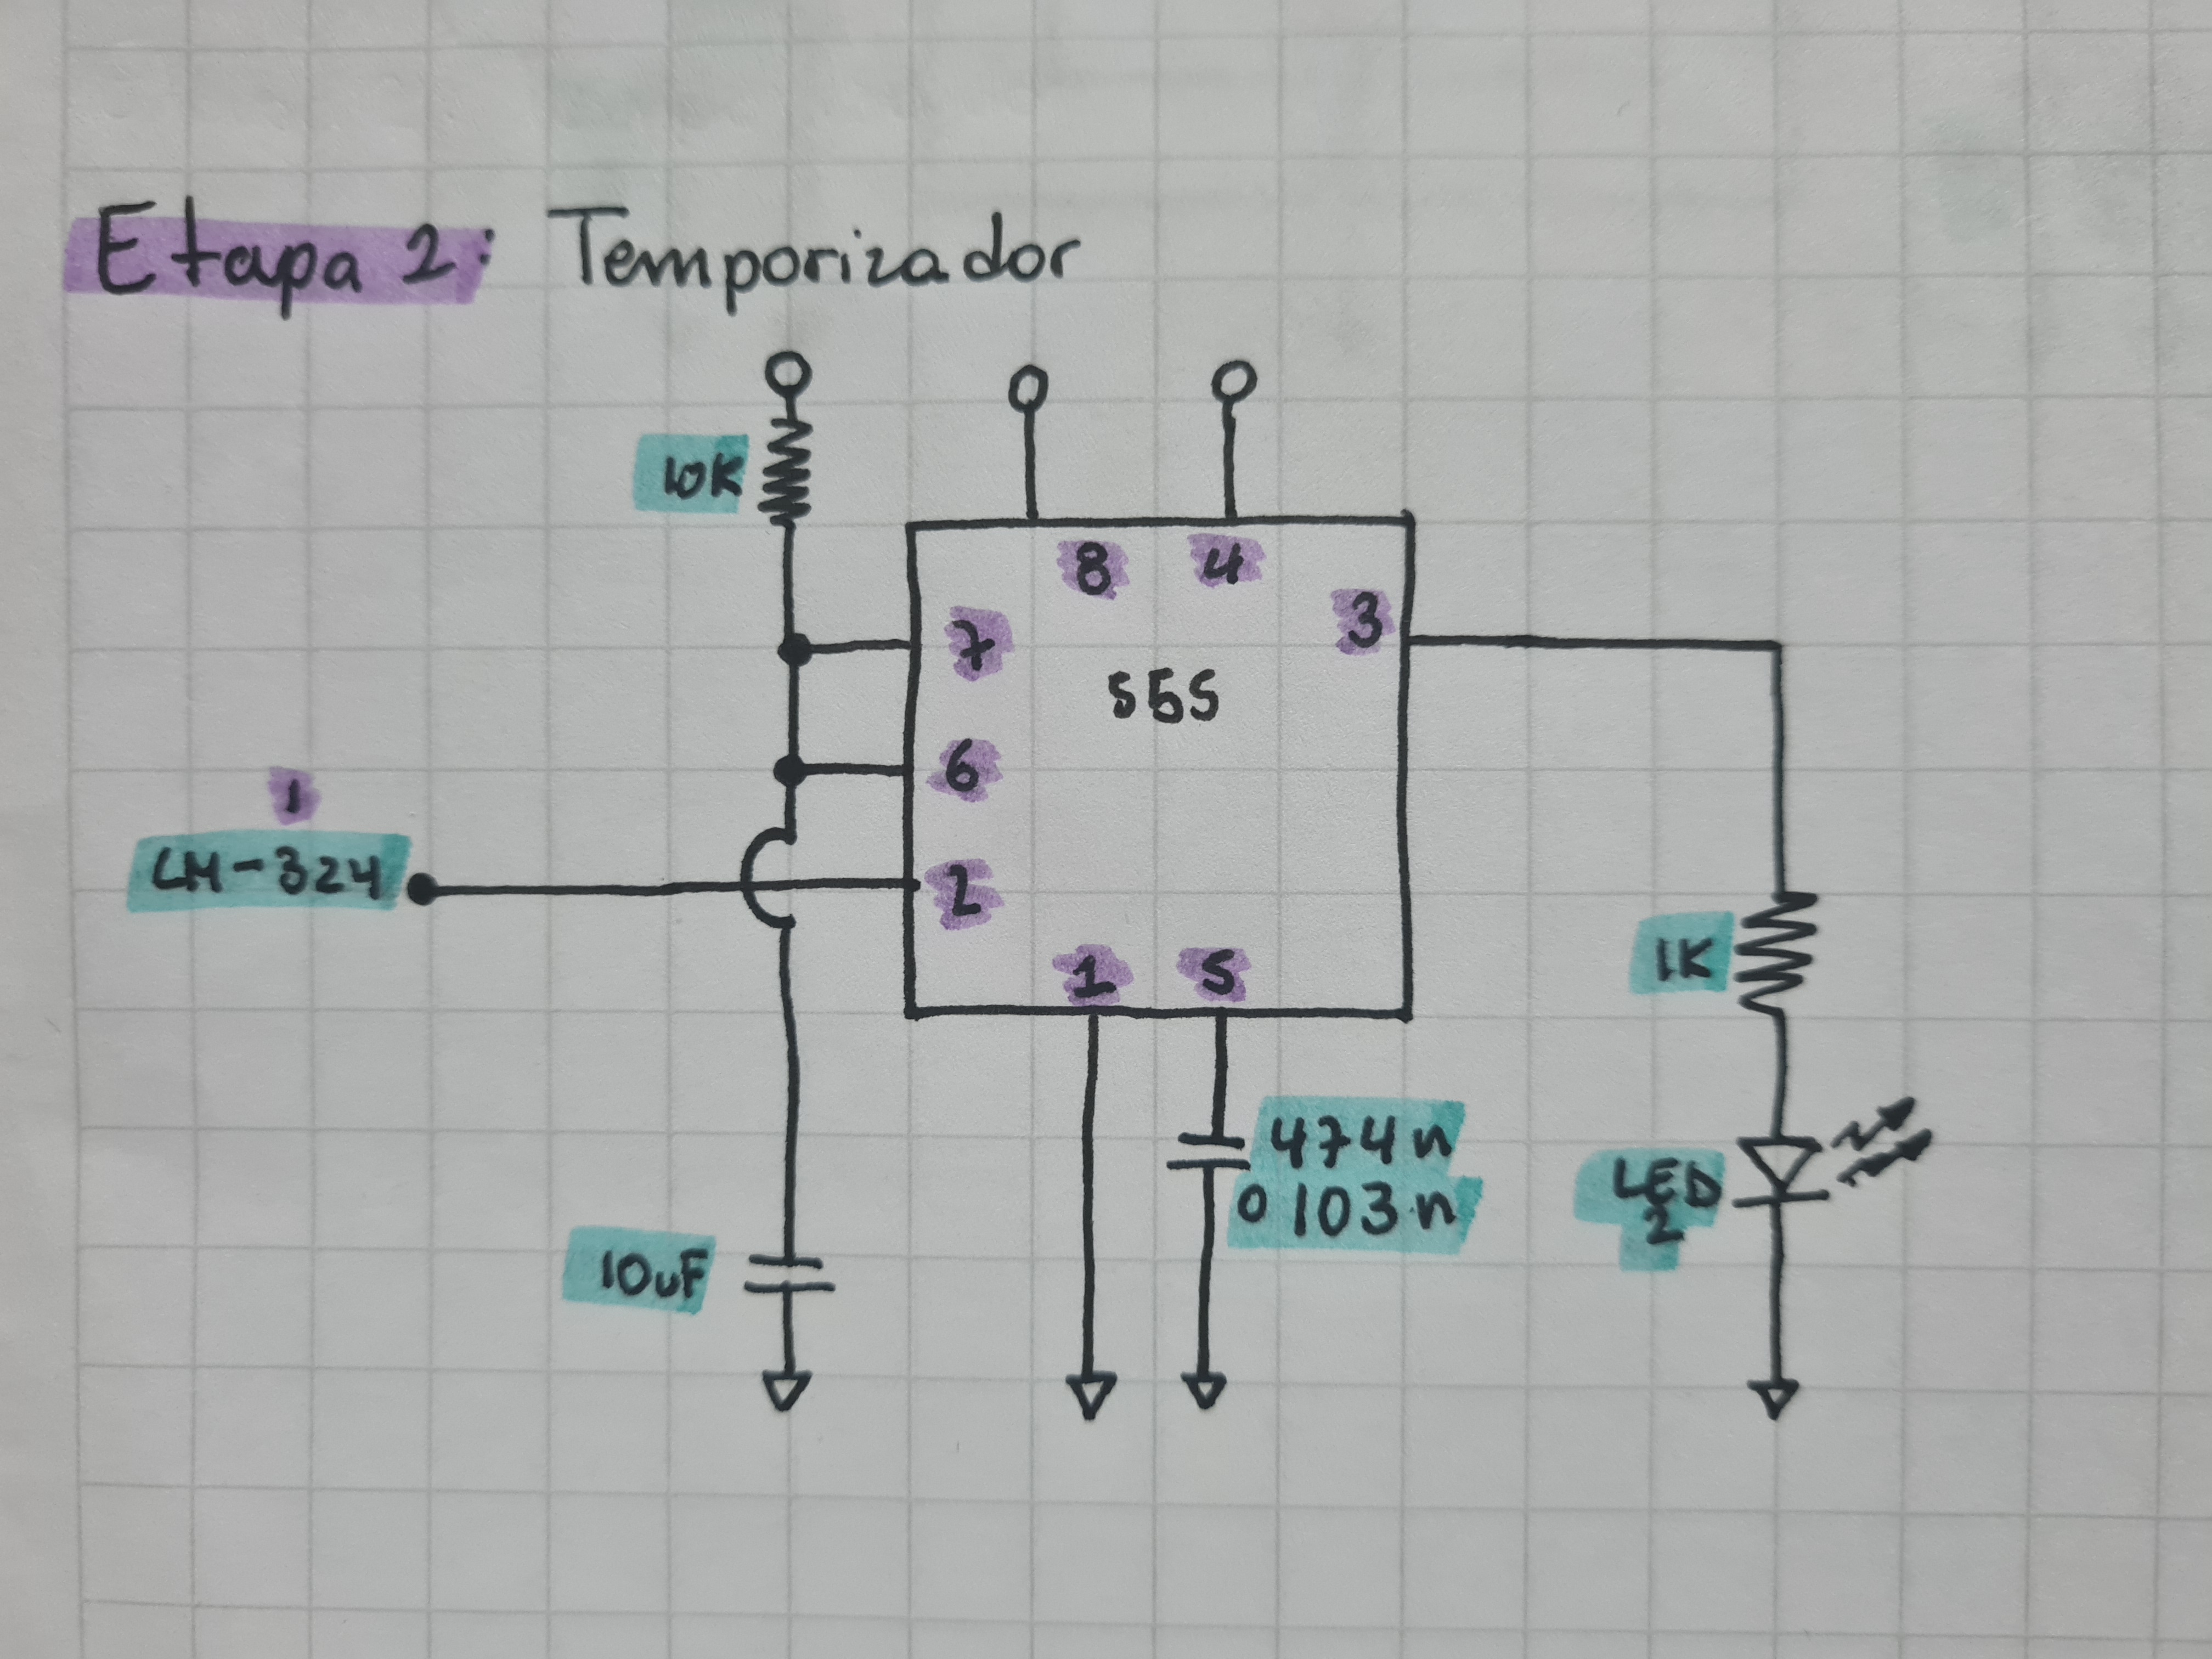 Etapa 2: Temporizador
10K
8 4
3
7
555
6
1
LM-324
2
1 5
1K
474n
o 103n
LED
2
10uF